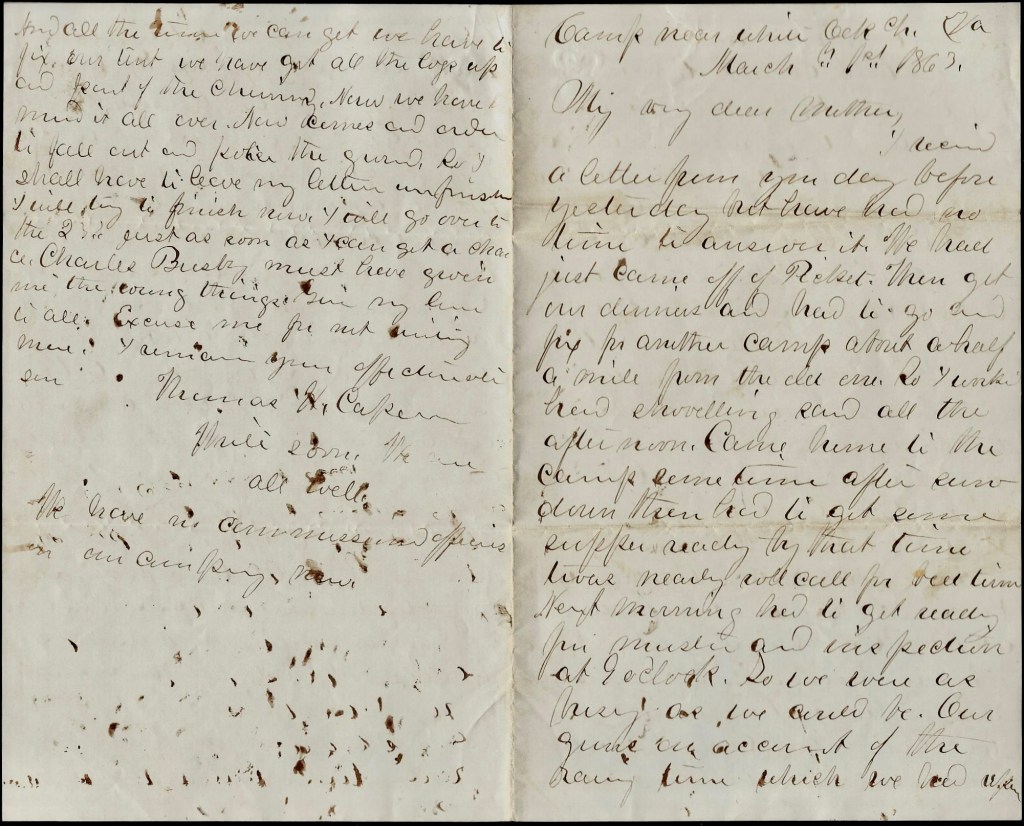 Camp near white Oak Ch. Va
March 1st 1863.
My very dear Mother,
I received
a letter from you day before
yesterday but have had no
time to answer it. We had
just came off of Picket. Then get
our dinners and had to go and
fix for another camp about a half
a mile from the old one. So I worked
hard shovelling sand all the
afternoon. Came home to the
camp sometime after sun
down then had to get some
supper ready by that time
twas nearly roll call for bed time
Next morning had to get ready
for muster and inspection
at 9 oclock. So we were as
busy as we could be. Our
guns on account of the
rainy time which we had
And all the time we can get we have to
fix our tent we have got all the logs up
and part of the Chimny. Now we have
mud it all over. Now comes and order
to fall out and police the ground. So I
shall have to leave my letter unfinished
I will try to finish now. I will go over to
the 23d just as soon as I can get a chan
ce. Charles Busby must have given
me the things. Give my love
to all. Excuse me for not writing
more. I remain your affectionate
son
Thomas H. Capern
Write soon. We are
all well.
We have no commissioned officers
in our company now.